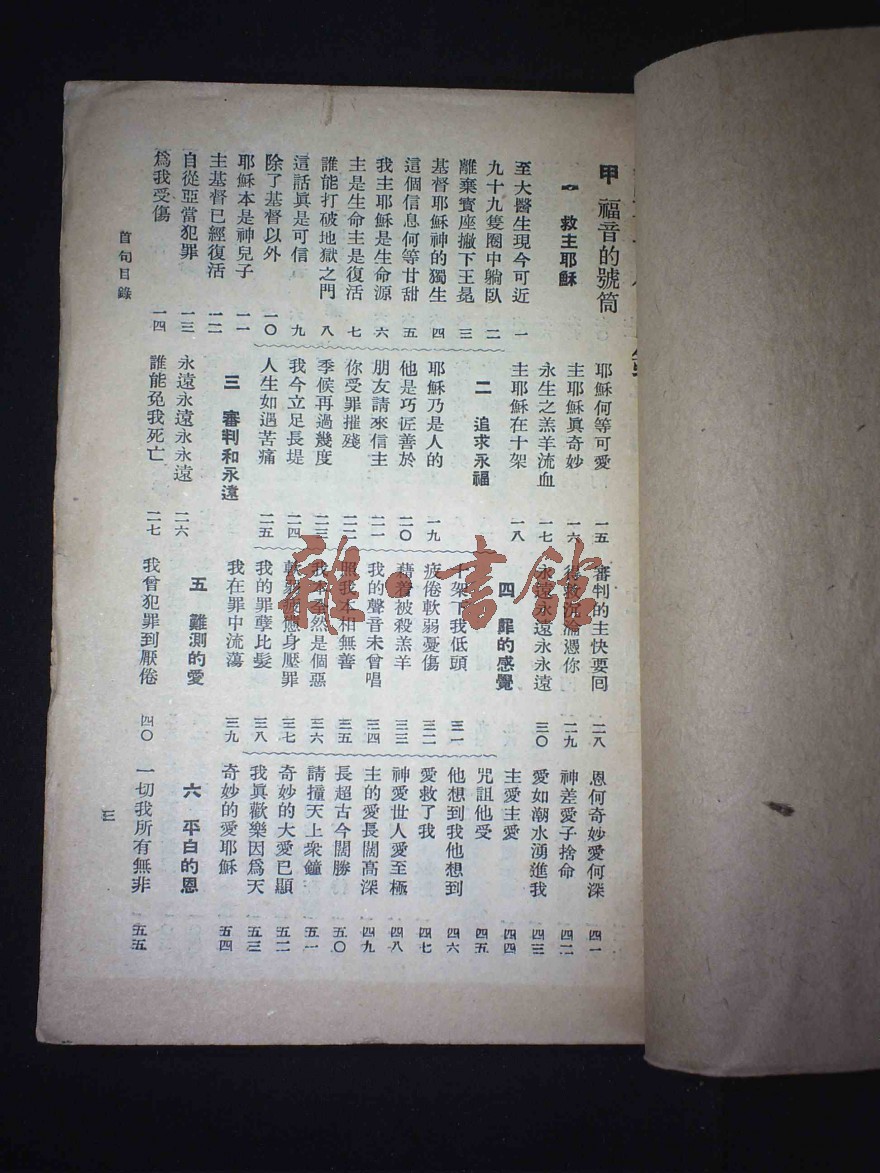 甲 福音的號筒
一 救主耶穌
至大醫生現今可近 一
九十九隻圈中躺臥 二
離棄寶座撇下王冕 三
基督耶穌神的獨生 四
這個信息何等甘甜 五
我主耶穌是生命源 六
主是生命主是復活 七
誰能打破地獄之門 八
這話眞是可信 九
除了基督以外 一〇
耶穌本是神兒子 一一
主基督已經復活 一二
自從亞當犯罪 一三
爲我受傷 一四
耶穌何等可愛 一五
主耶穌眞奇妙 一六
永生之羔羊流血 一七
主耶穌在十架 一八
二 追求永福
耶穌乃是人的 一九
他是巧匠善於 二〇
朋友請來信主 二一
你受罪摧殘 二二
季候再過幾度 二三
我今立足長堤 二四
人生如遇苦痛 二五
三 審判和永遠
永遠永遠永永遠 二六
誰能免我死亡 二七
審判的主快要囘 二八
得救沉淪憑你 二九
永遠永遠永永遠 三〇
四 罪的感覺
十架下我低頭 三一
疲倦軟弱憂傷 三二
藉着被殺羔羊 三三
我的聲音未曾唱 三四
照我本相無善 三五
我本全然是個惡 三六
身壓罪 三七
我的罪孽比髮 三八
我在罪中流蕩 三九
五 難測的愛
我曾犯罪到厭倦 四〇
恩何奇妙愛何深 四一
神差愛子捨命 四二
愛如潮水湧進我 四三
主愛主愛 四四
咒詛他受 四五
他想到我他想到 四六
愛救了我 四七
神愛世人愛至極 四八
主的愛長闊高深 四九
長超古今闊勝 五〇
請撞天上衆鐘 五一
奇妙的大愛已顯 五二
我眞歡樂因爲天 五三
奇妙的愛耶穌 五四
六 平白的恩
一切我所有無非 五五
首句目錄
三
雜·書館